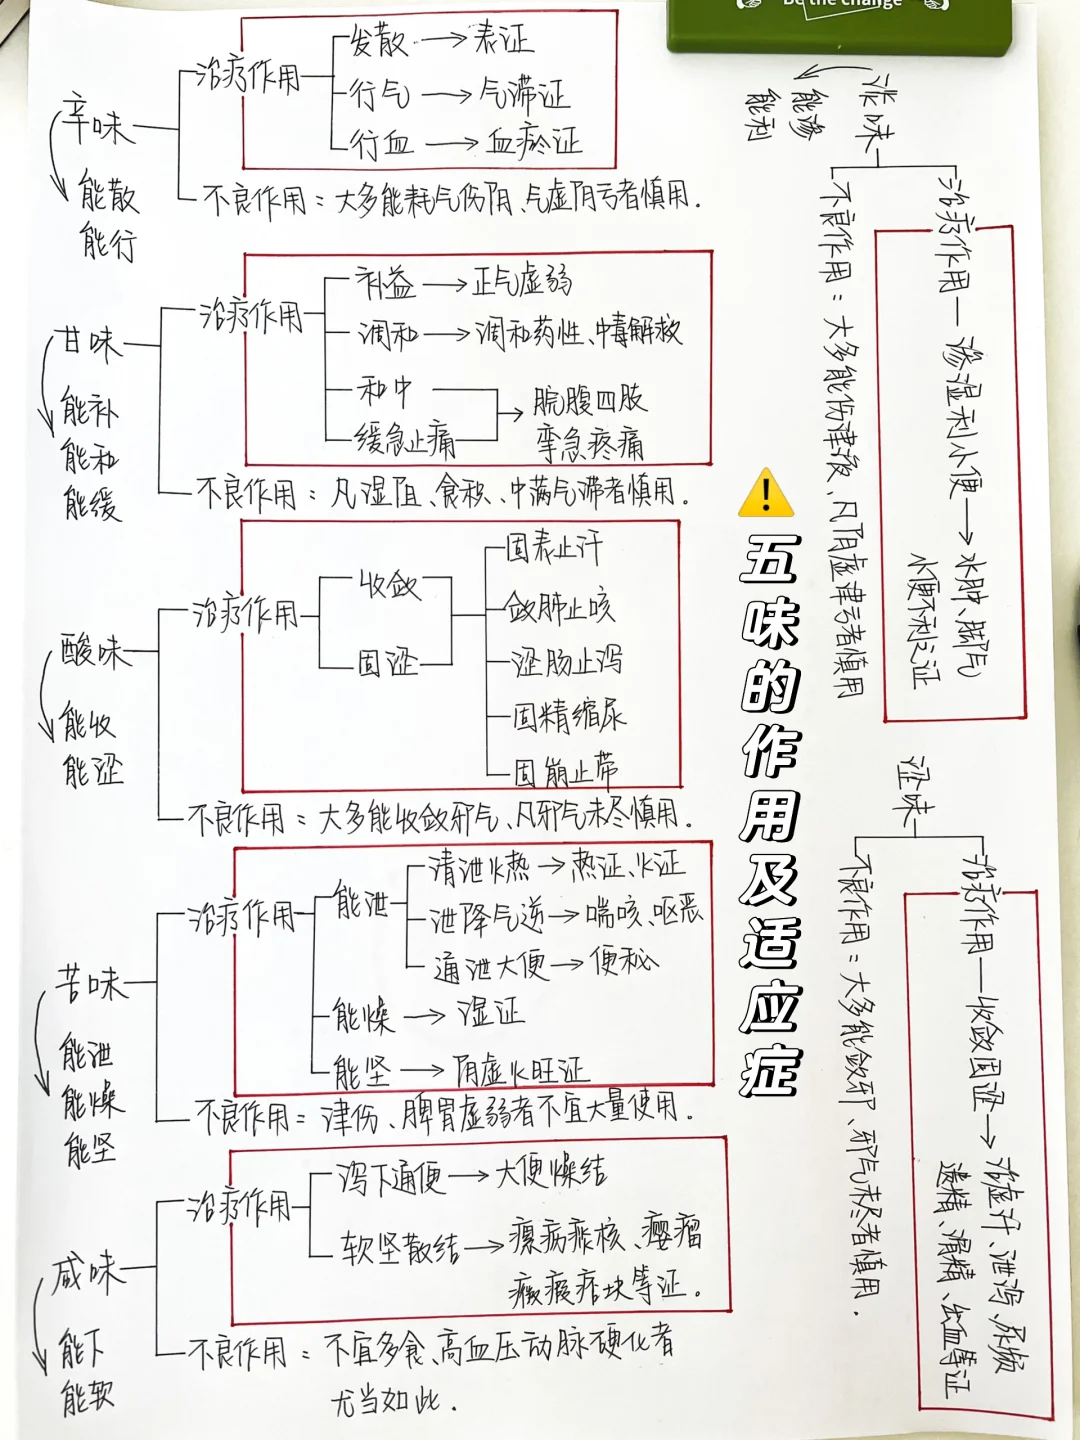 Be the change
辛味
能散
能行
治疗作用
发散 → 表证
行气 → 气滞证
行血 → 血瘀证
不良作用：大多能耗气伤阴、气虚阴亏者慎用.
甘味
能补
能和
能缓
治疗作用
补益 → 正气虚弱
调和 → 调和药性、中毒解救
和中
缓急止痛
→ 脘腹四肢
挛急疼痛
不良作用：凡湿阻、食积、中满气滞者慎用.
酸味
能收
能涩
治疗作用
收敛
固涩
固表止汗
敛肺止咳
涩肠止泻
固精缩尿
固崩止带
不良作用：大多能收敛邪气、凡邪气未尽慎用.
苦味
能泄
能燥
能坚
治疗作用
能泄
清泄火热 → 热证、火证
泄降气逆 → 喘咳、呕恶
通泄大便 → 便秘
能燥 → 湿证
能坚 → 阴虚火旺证
不良作用：津伤、脾胃虚弱者不宜大量使用.
咸味
能下
能软
治疗作用
泻下通便 → 大便燥结
软坚散结 → 瘰疬痰核、瘿瘤
癥瘕痞块等证.
不良作用：不宜多食、高血压动脉硬化者
尤当如此.
⚠️五味的作用及适应症
淡味
能渗
能利
治疗作用 — 渗湿利小便 → 水肿、脚气
小便不利之证
不良作用：大多能伤津液、凡阴虚津亏者慎用
涩味
治疗作用 — 收敛固涩 → 治虚汗、泄泻、尿频
遗精、滑精、出血等证
不良作用：大多能敛邪、邪气未尽者慎用.